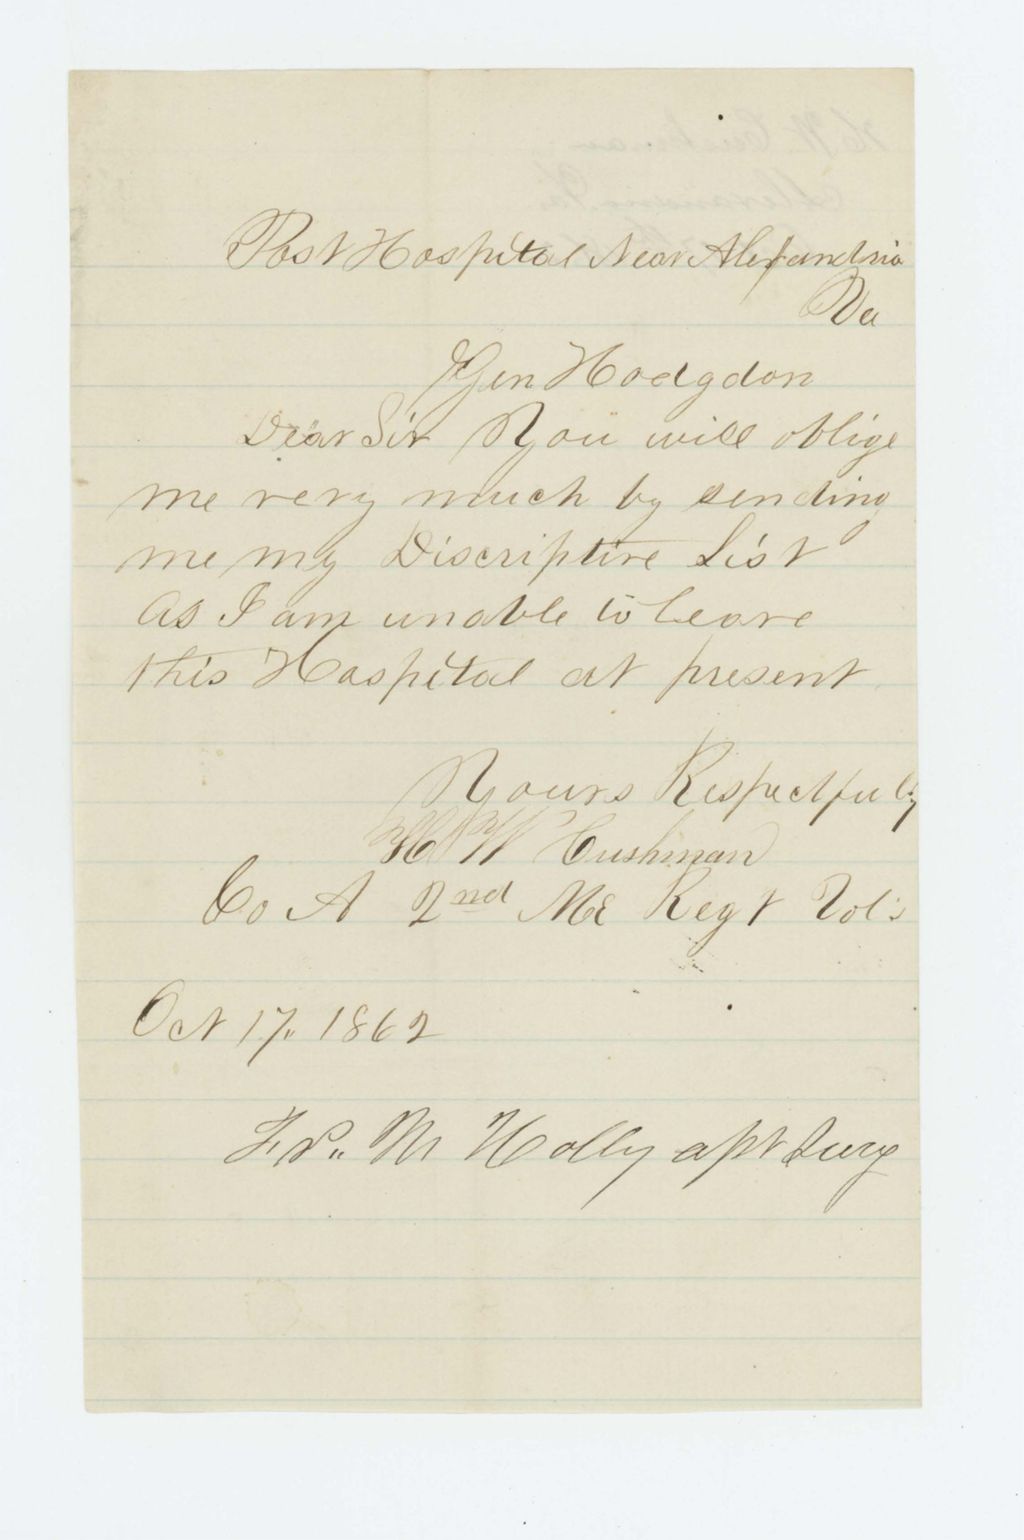 Post Hospital Near Alexandria
Va
Gen Hodgdon
Dear Sir You will oblige
me very much by sending
me my Discriptive List
As I am unable to leave
this Hospital at present
Yours Respectfully
H W Cushman
Co A 2nd Me Regt Vol's
Oct 17,, 1862
M Holly Surg